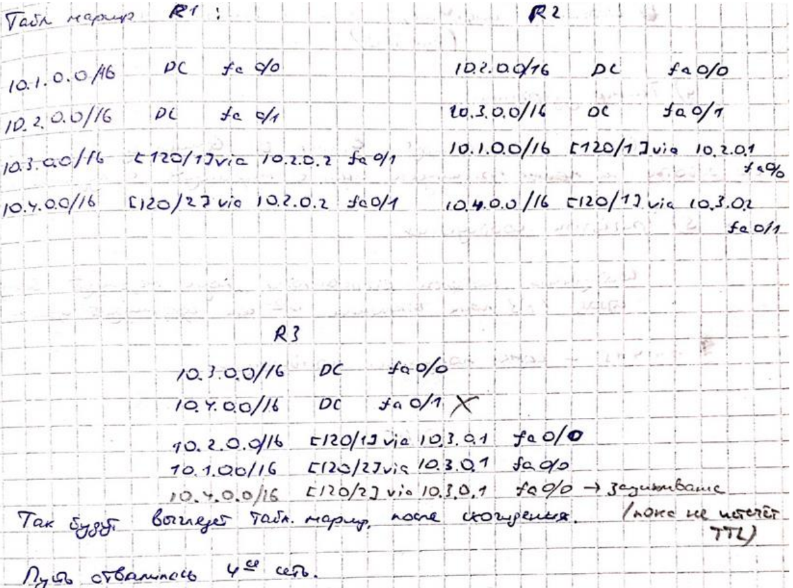 Табл маршр R1 :
R2
10.1.0.0/16 DC fa 0/0
10.2.0.0/16 DC fa 0/1
10.3.0.0/16 [120/1] via 10.2.0.2 fa0/1
10.4.0.0/16 [120/2] via 10.2.0.2 fa0/1
10.2.0.0/16 DC fa0/0
10.3.0.0/16 DC fa0/1
10.1.0.0/16 [120/1] via 10.2.0.1
fa0/0
10.4.0.0/16 [120/1] via 10.3.0.2
fa0/1
R3
10.3.0.0/16 DC fa0/0
10.4.0.0/16 DC fa0/1 X
10.2.0.0/16 [120/1] via 10.3.0.1 fa0/0
10.1.0.0/16 [120/2] via 10.3.0.1 fa0/0
10.4.0.0/16 [120/2] via 10.3.0.1 fa0/0 → зацикливание
(пока не истечёт
TTL)
Так будут выглядеть табл. маршр. после схождения.
Пусть отвалилась 4ая сеть.